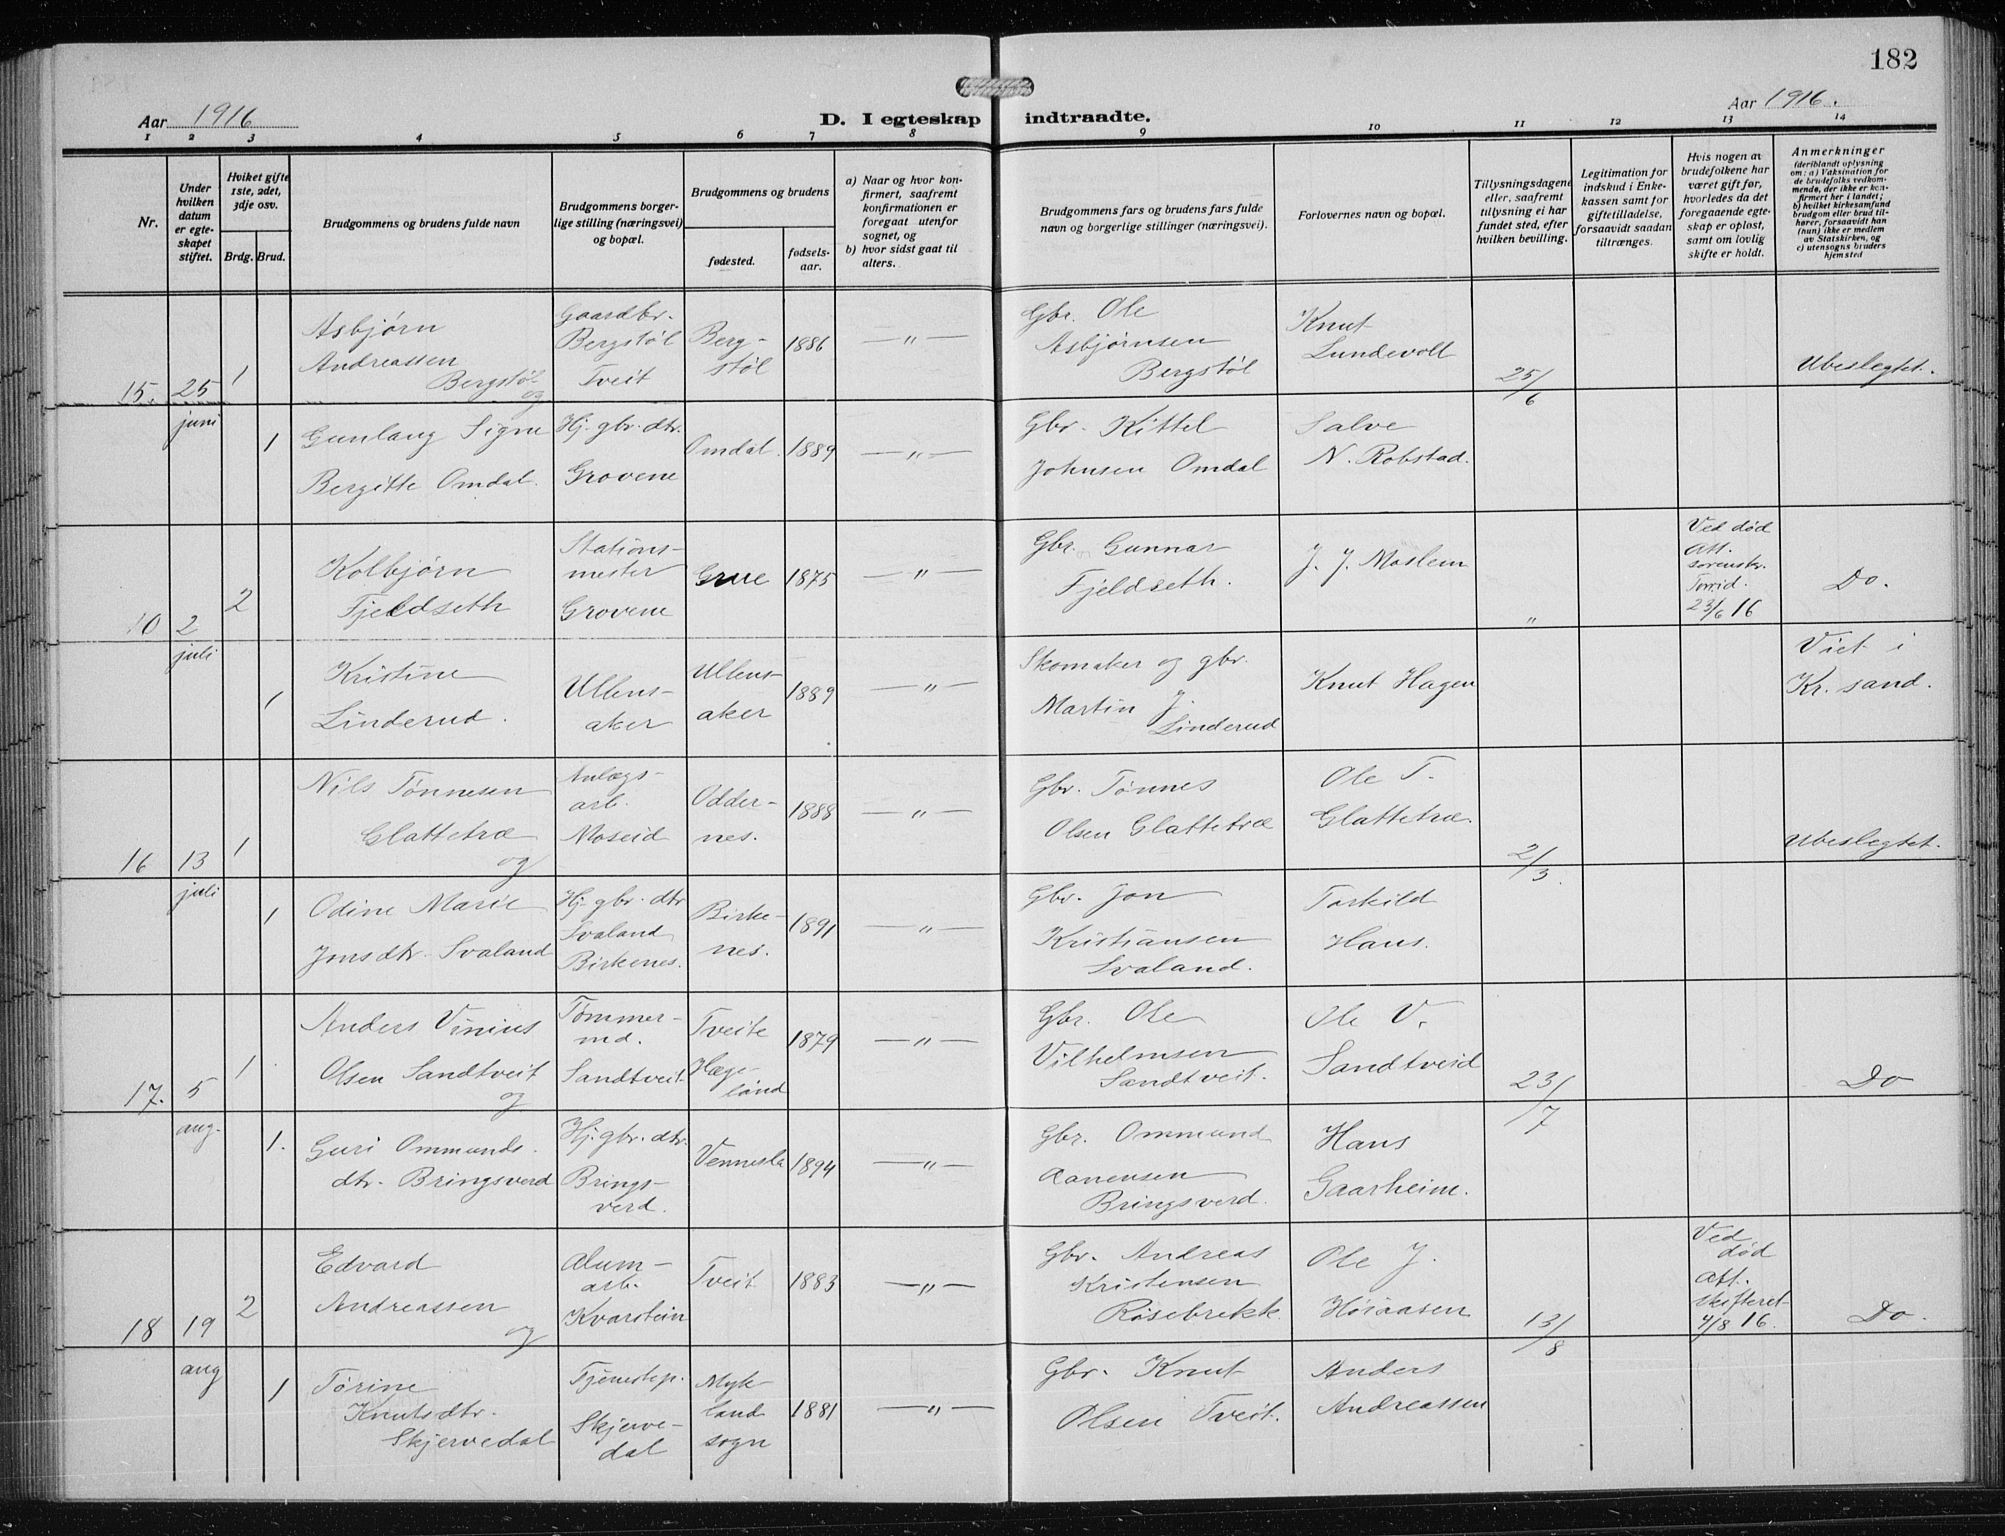 182
Aar 1916
D. I egteskap indtraadte.
Aar 1916.
1 2 3 4 5 6 7 8 9 10 11 12 13 14
Nr.
Under
hvilken
datum
er egte-
skapet
stiftet.
Hviket gifte
1ste, 2det,
3dje osv.
Brdg. Brud.
Brudgommens og brudens fulde navn
Brudgommens borger-
lige stilling (næringsvei)
og bopæl.
Brudgommens og brudens
fødested.
fødsels-
aar.
a) Naar og hvor kon-
firmert, saafremt
konfirmationen er
foregaat utenfor
sognet, og
b) hvor sidst gaat til
alters.
Brudgommens fars og brudens fars fulde
navn og borgerlige stillinger (næringsvei).
Forlovernes navn og bopæl.
Tillysningsdagene
eller, saafremt
tillysning ei har
fundet sted, efter
hvilken bevilling.
Legitimation for
indskud i Enke-
kassen samt for
giftetilladelse,
forsaavidt saadan
tiltrænges.
Hvis nogen av
brudefolkene har
været gift før,
hvorledes da det
foregaaende egte-
skap er opløst,
samt om lovlig
skifte er holdt.
Anmerkninger
(deriblandt oplysning
om: a) Vaksination for
de brudefolks vedkom-
mende, der ikke er kon-
firmert her i landet;
b) hvilket kirkesamfund
brudgom eller brud til-
hører, forsaavidt han
(hun) ikke er medlem
av Statskirken, og
c) utensogns bruders
hjemsted
15. 25 juni
1
Asbjørn
Andreassen
Bergstøl
og
Gaardbr.
Bergstøl
Tveit
Berg-
støl
1886
— " —
Gbr. Ole
Asbjørnsen
Bergstøl
Knut
Lundevolt
25/6
Ubeslegtet.
1
Gunlaug Signe
Bergitte Omdal.
Hj. gbr. dtr.
Grovene
Omdal.
1889
— " —
Gbr. Kittel
Johnsen Omdal
Salve
N. Robstad.
10 2 juli
2
Kolbjørn
Fjeldseth
Stations-
mester
Grovene
Grue
1875
— " —
Gbr. Gunnar
Fjeldseth.
J. J. Moslem
"
Ved død
att.
sorenskr.
Torrid.
23/6 16
Do.
1
Kristine
Linderud.
Ullens-
aker
Ullens-
aker
1889
— " —
Skomaker og gbr.
Martin J.
Linderud
Knut Hagen
Viet i
Kr. sand.
16 13 juli
1
Nils Tønnesen
Glattetræ
og
Anlægs-
arb.
Moseid
Odder-
nes.
1888
— " —
Gbr. Tønnes
Olsen Glattetræ
Ole T.
Glattetræ.
2/3.
Ubeslegtet.
1
Odine Marie
Jonsdtr. Svaland
Hj. gbr. dtr
Svaland
Birkenes.
Birke-
nes.
1891
— " —
Gbr. Jon
Kristiansen
Svaland.
Torkild
Haus.
17. 5 aug.
1
Anders Vinius
Olsen Sandtveit
og
Tømmer-
md.
Sandtveit
Tveite
Hæge-
land
1879
— " —
Gbr. Ole
Vilhelmsen
Sandtveit.
Ole V.
Sandtveid
23/7
Do
1.
Guri Ommunds.
dtr. Bringsverd
Hj. gbr. dtr.
Brings-
verd.
Vennesla
1894
— " —
Gbr. Ommund
Aanensen
Bringsverd.
Hans
Gaarheim.
18 19 aug
2
Edvard
Andreassen
og
Alum-
arb.
Kvarstein
Tveit
1883
— " —
Gbr. Andreas
Kristensen
Røsebrekk
Ole J.
Høiaasen
13/8
Ved
død
Att.
skifteret
4/8 16.
Do.
1
Tørine
Knutsdtr.
Skjervedal
Tjenestep.
Skjerve-
dal
Myk-
land
sogn
1881
— " —
Gbr. Knut
Olsen Tveit.
Anders
Andreassen